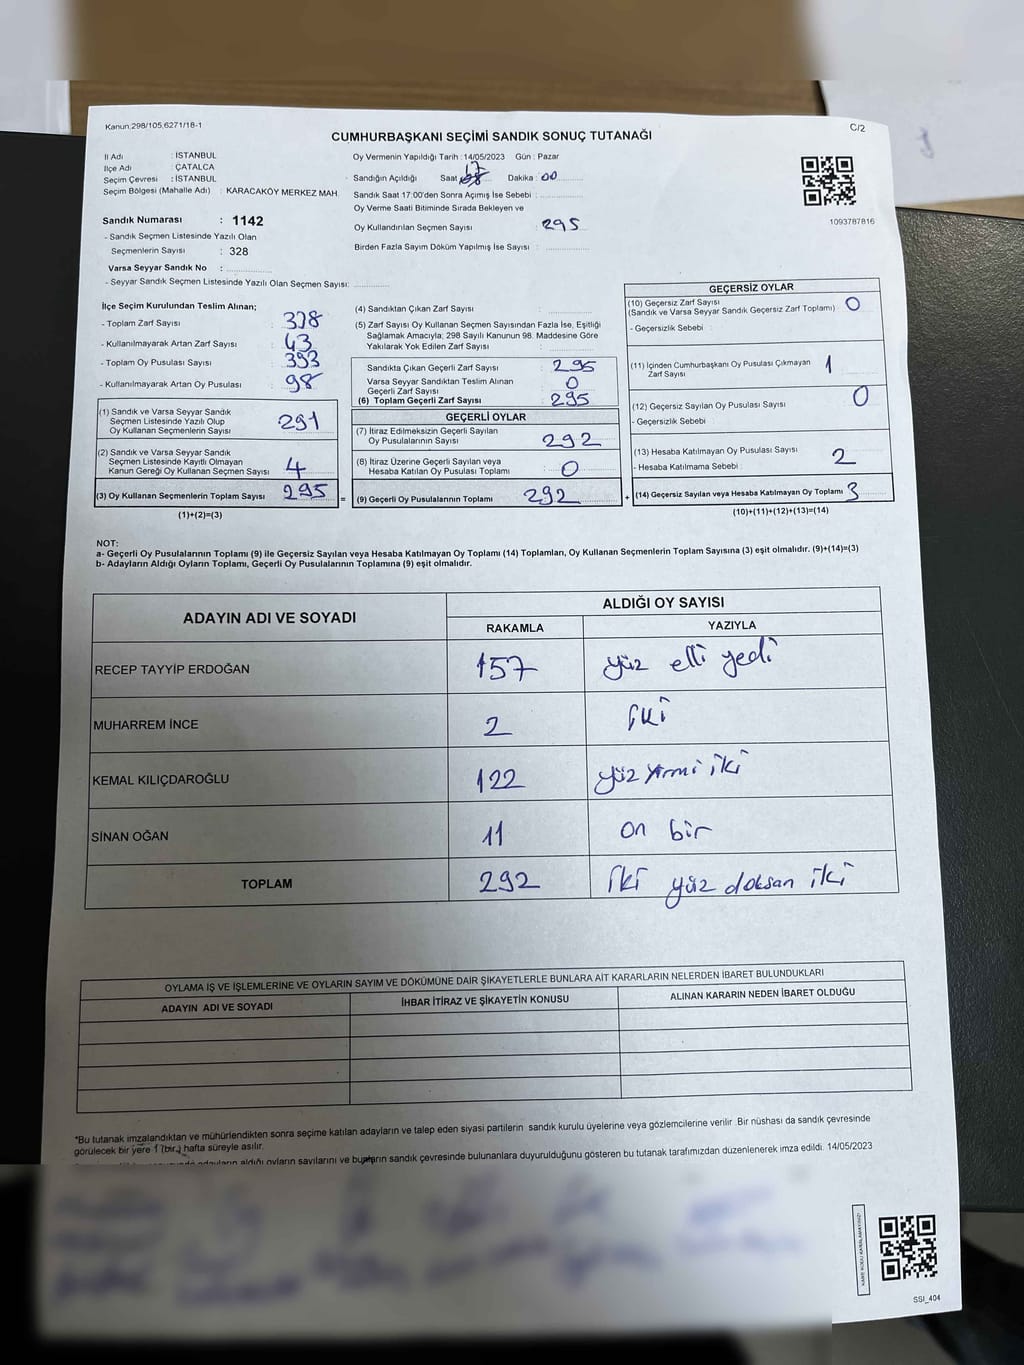 Kanun.298/105,6271/18-1
C/2
CUMHURBAŞKANI SEÇİMİ SANDIK SONUÇ TUTANAĞI
İl Adı : İSTANBUL
İlçe Adı : ÇATALCA
Seçim Çevresi : İSTANBUL
Seçim Bölgesi (Mahalle Adı) : KARACAKÖY MERKEZ MAH.
Sandık Numarası : 1142
- Sandık Seçmen Listesinde Yazılı Olan
Seçmenlerin Sayısı : 328
Varsa Seyyar Sandık No :
- Seyyar Sandık Seçmen Listesinde Yazılı Olan Seçmen Sayısı:
Oy Vermenin Yapıldığı Tarih : 14/05/2023 Gün : Pazar
Sandığın Açıldığı Saat 17 Dakika : 00
Sandık Saat 17:00'den Sonra Açımış İse Sebebi :
Oy Verme Saati Bitiminde Sırada Bekleyen ve
Oy Kullandırılan Seçmen Sayısı : 295
Birden Fazla Sayım Döküm Yapılmış İse Sayısı :
1093787816
İlçe Seçim Kurulundan Teslim Alınan;
- Toplam Zarf Sayısı : 338
- Kullanılmayarak Artan Zarf Sayısı : 43
- Toplam Oy Pusulası Sayısı : 393
- Kullanılmayarak Artan Oy Pusulası : 98
(1) Sandık ve Varsa Seyyar Sandık
Seçmen Listesinde Yazılı Olup
Oy Kullanan Seçmenlerin Sayısı : 291
(2) Sandık ve Varsa Seyyar Sandık
Seçmen Listesinde Kayıtlı Olmayan
Kanun Gereği Oy Kullanan Seçmen Sayısı : 4
(3) Oy Kullanan Seçmenlerin Toplam Sayısı : 295 =
(1)+(2)=(3)
(4) Sandıktan Çıkan Zarf Sayısı :
(5) Zarf Sayısı Oy Kullanan Seçmen Sayısından Fazla İse, Eşitliği
Sağlamak Amacıyla; 298 Sayılı Kanunun 98. Maddesine Göre
Yakılarak Yok Edilen Zarf Sayısı :
Sandıkta Çıkan Geçerli Zarf Sayısı : 295
Varsa Seyyar Sandıktan Teslim Alınan
Geçerli Zarf Sayısı : 0
(6) Toplam Geçerli Zarf Sayısı : 295
GEÇERLİ OYLAR
(7) İtiraz Edilmeksizin Geçerli Sayılan
Oy Pusulalarının Sayısı : 292
(8) İtiraz Üzerine Geçerli Sayılan veya
Hesaba Katılan Oy Pusulası Toplamı : 0
(9) Geçerli Oy Pusulalarının Toplamı : 292 +
GEÇERSİZ OYLAR
(10) Geçersiz Zarf Sayısı
(Sandık ve Varsa Seyyar Sandık Geçersiz Zarf Toplamı) : 0
- Geçersizlik Sebebi :
(11) İçinden Cumhurbaşkanı Oy Pusulası Çıkmayan
Zarf Sayısı : 1
(12) Geçersiz Sayılan Oy Pusulası Sayısı : 0
- Geçersizlik Sebebi :
(13) Hesaba Katılmayan Oy Pusulası Sayısı : 2
- Hesaba Katılmama Sebebi :
(14) Geçersiz Sayılan veya Hesaba Katılmayan Oy Toplamı : 3
(10)+(11)+(12)+(13)=(14)
NOT:
a- Geçerli Oy Pusulalarının Toplamı (9) ile Geçersiz Sayılan veya Hesaba Katılmayan Oy Toplamı (14) Toplamları, Oy Kullanan Seçmenlerin Toplam Sayısına (3) eşit olmalıdır. (9)+(14)=(3)
b- Adayların Aldığı Oyların Toplamı, Geçerli Oy Pusulalarının Toplamına (9) eşit olmalıdır.
ADAYIN ADI VE SOYADI
ALDIĞI OY SAYISI
RAKAMLA YAZIYLA
RECEP TAYYİP ERDOĞAN 157 yüz elli yedi
MUHARREM İNCE 2 iki
KEMAL KILIÇDAROĞLU 122 yüz yirmi iki
SİNAN OĞAN 11 on bir
TOPLAM 292 iki yüz doksan iki
OYLAMA İŞ VE İŞLEMLERİNE VE OYLARIN SAYIM VE DÖKÜMÜNE DAİR ŞİKAYETLERLE BUNLARA AİT KARARLARIN NELERDEN İBARET BULUNDUKLARI
ADAYIN ADI VE SOYADI İHBAR İTİRAZ VE ŞİKAYETİN KONUSU ALINAN KARARIN NEDEN İBARET OLDUĞU
*Bu tutanak imzalandıktan ve mühürlendikten sonra seçime katılan adayların ve talep eden siyasi partilerin sandık kurulu üyelerine veya gözlemcilerine verilir. Bir nüshası da sandık çevresinde
görülecek bir yere 1 (bir) hafta süreyle asılır.
adayların aldığı oyların sayılarını ve bunların sandık çevresinde bulunanlara duyurulduğunu gösteren bu tutanak tarafımızdan düzenlenerek imza edildi. 14/05/2023
SSI_404